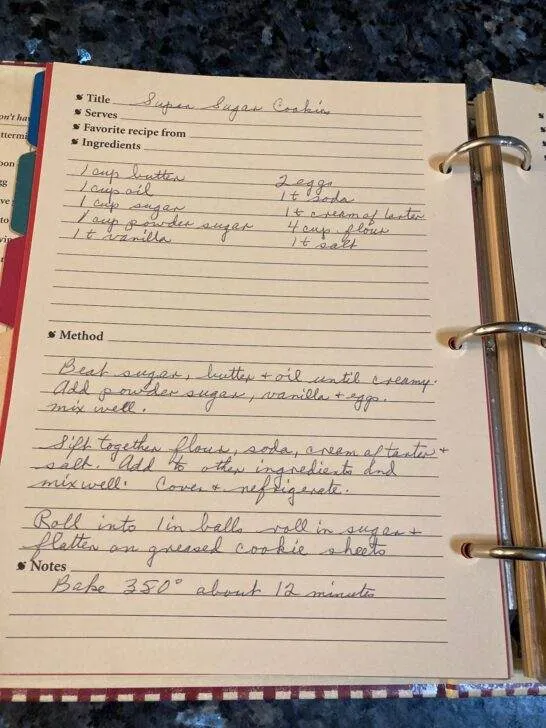 Title Super Sugar Cookies
Serves
Favorite recipe from
Ingredients
1 cup butter
1 cup oil
1 cup sugar
1 cup powder sugar
1 t vanilla
2 eggs
1 t soda
1 t cream of tarter
4 cup flour
1 t salt
Method
Beat sugar, butter + oil until creamy.
Add powder sugar, vanilla + eggs.
mix well.
Sift together flour, soda, cream of tarter +
salt. Add to other ingredients and
mix well. Cover + refrigerate.
Roll into 1 in balls roll in sugar +
flatten on greased cookie sheets
Notes
Bake 350° about 12 minutes